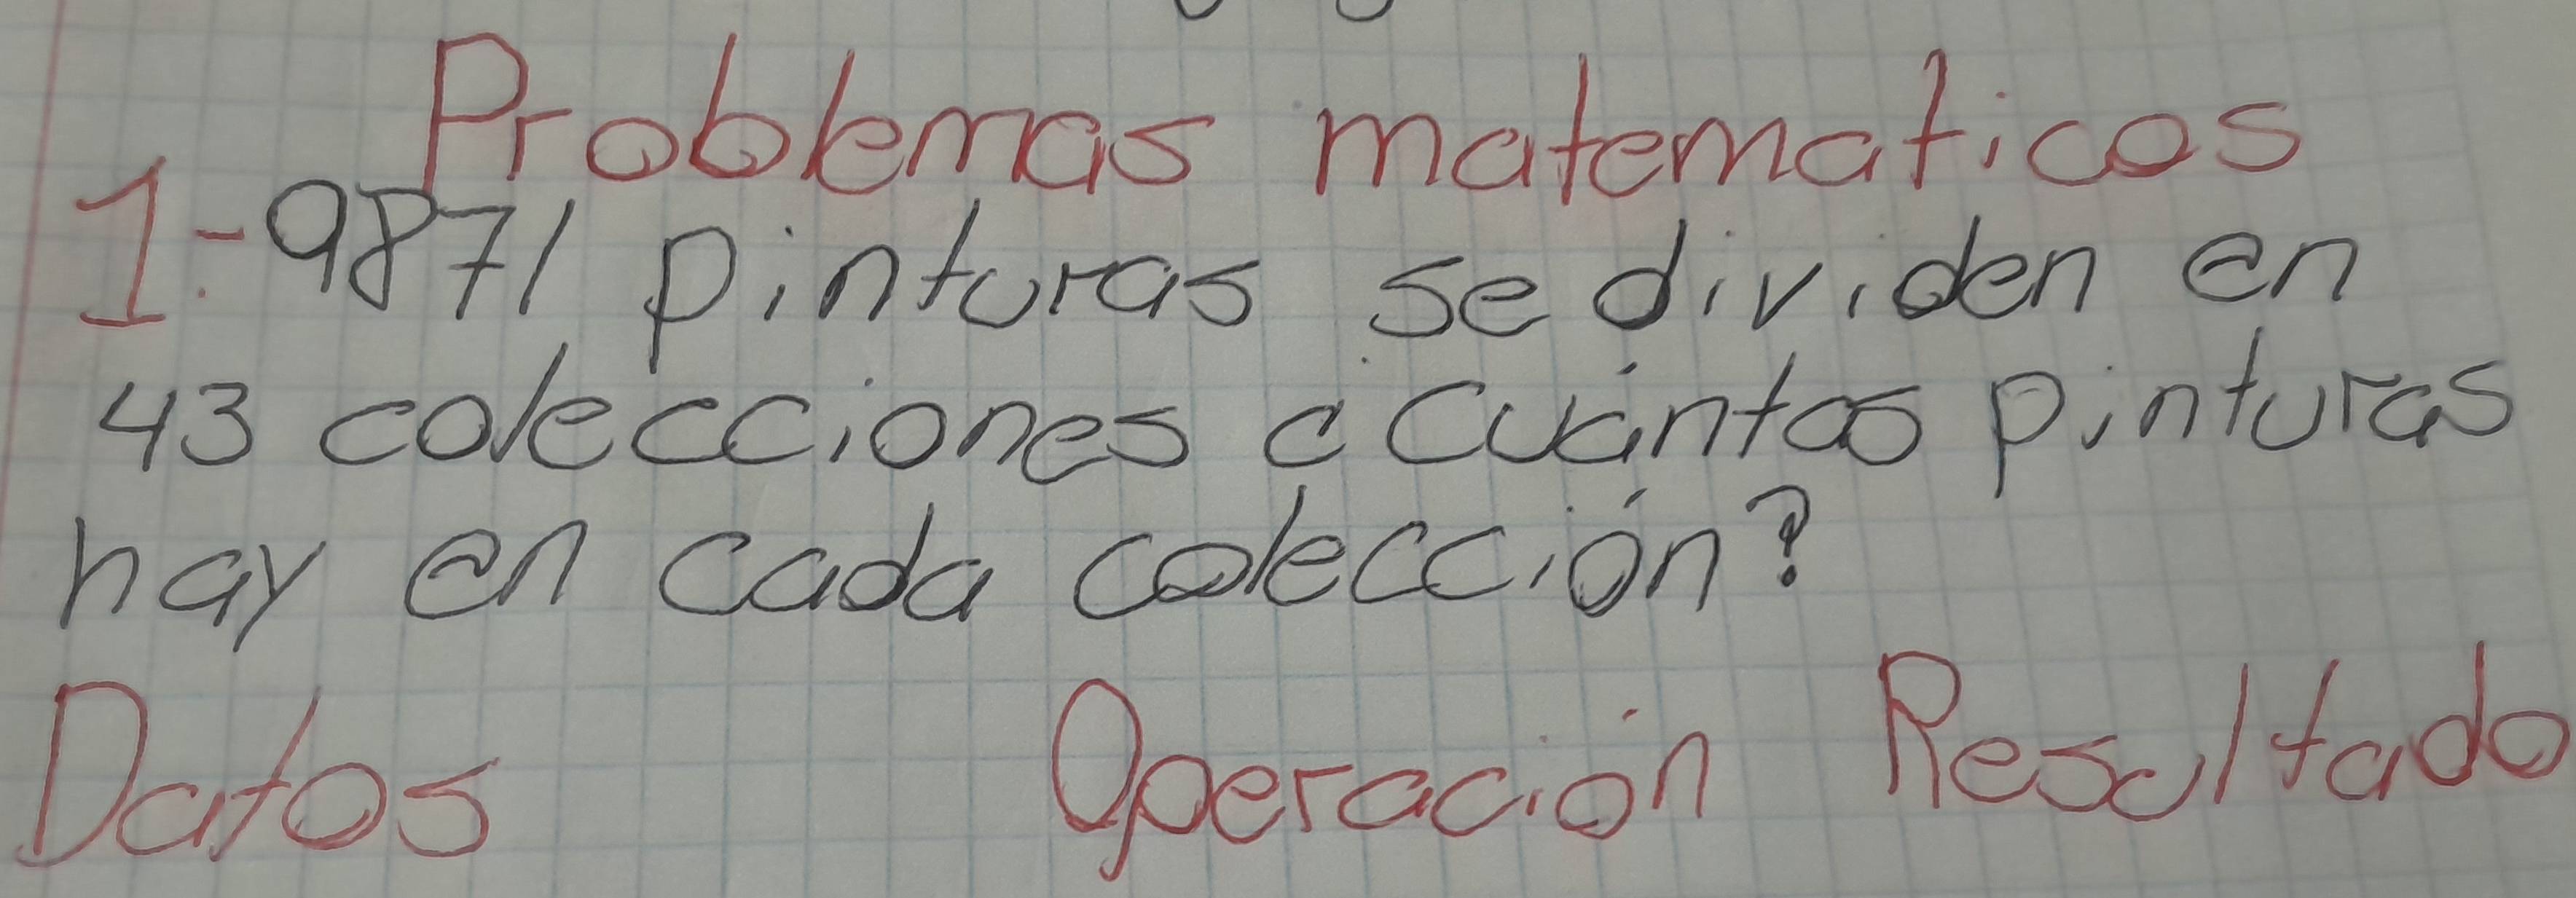 Problemas matematicos
1.- 9871 pinturas se dividen en
43 colecciones ¿Cuántas pinturas
hay en cada colección?
Datos Operación Resultado